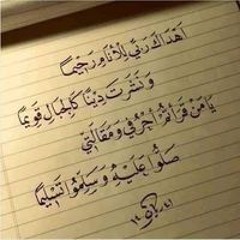 أهداك ربي للأنام رحيما
ونشرت دينا كالجبال قويما
يا من قرأتم أحرفي ومقالتي
صلوا عليه وسلموا تسليما